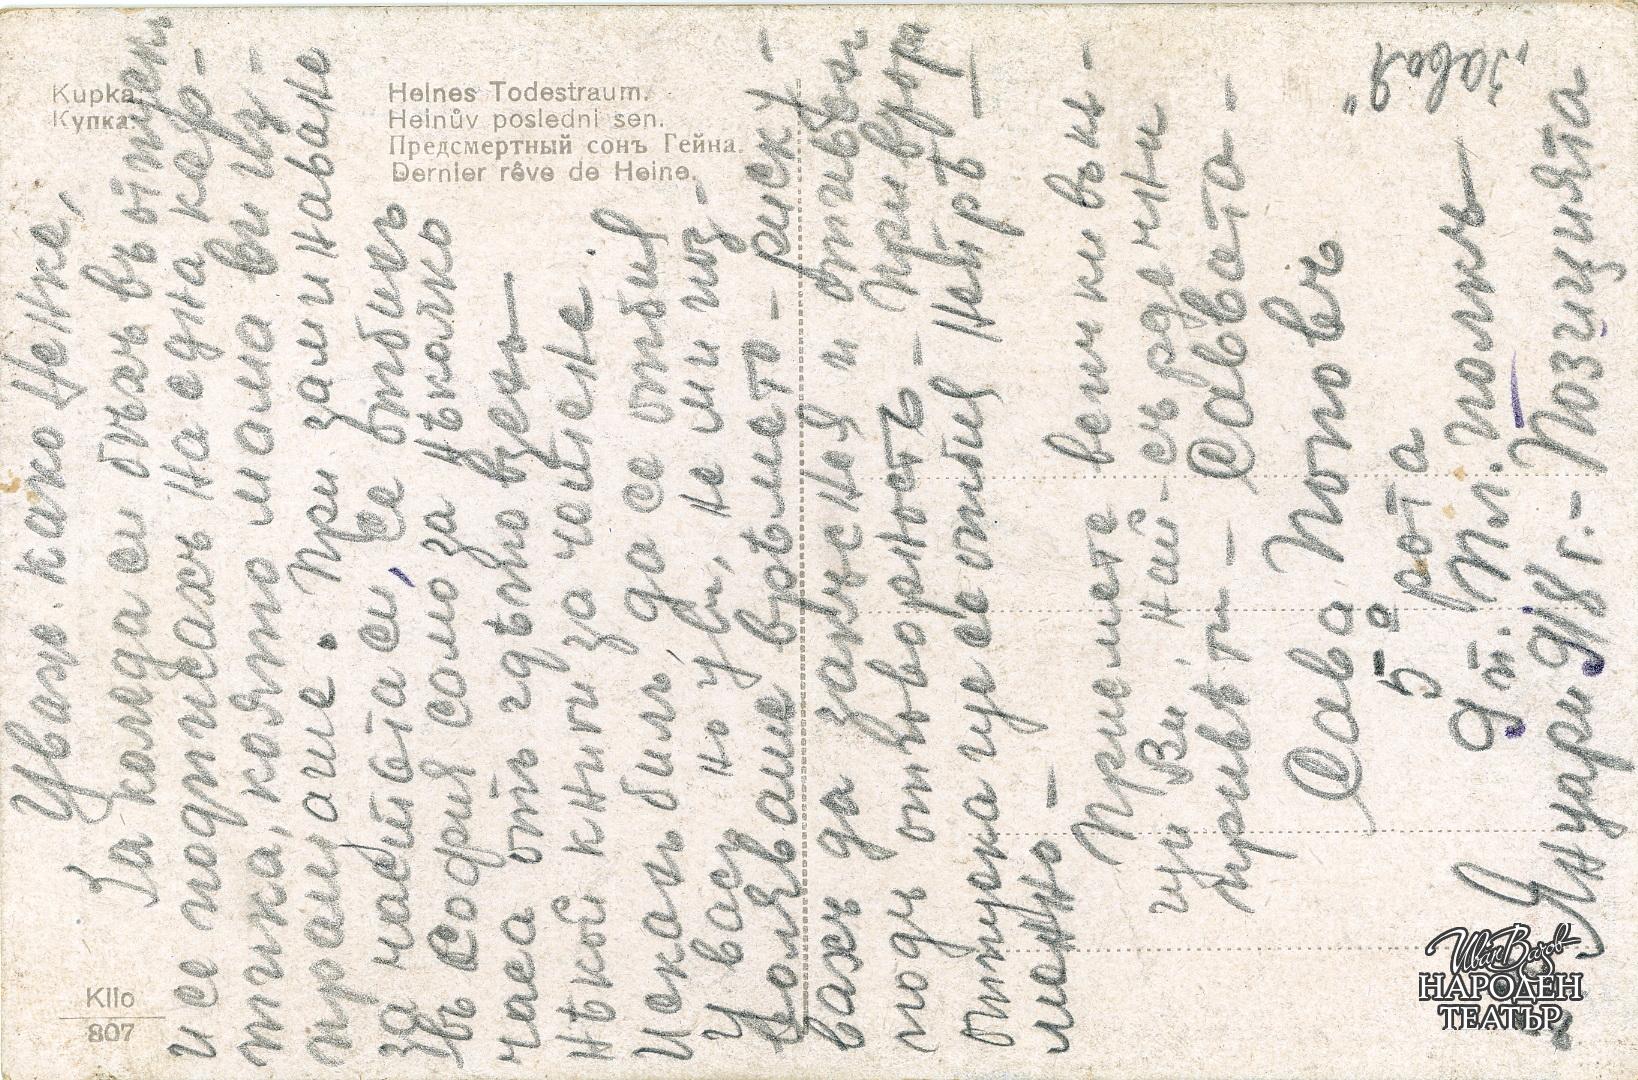 Kupka.
Купка.
Heines Todestraum.
Heinův poslední sen.
Предсмертный сонъ Гейна.
Dernier rêve de Heine.
KIIo
807
Уваж. како Ценке,
За коледа си бѣхъ въ отпускъ
и се подписахъ на една кар-
тичка, която мама ви из-
пращаше. При заминаване
за частьта си, се отбихъ
въ София само за нѣколко
часа отъ гдѣто взехъ
нѣкои книги за четене.
Исках билъ да се отбия
у васъ, но уви, не ми поз-
воляваше врѣмето - риску-
вахъ да закъснея и отивах
подъ отговорность - При втори
отпускъ ще се отбия непрѣ-
мѣнно -
Приемете великивън-
щи Ви, най-сърдечни
привѣти - Савата -
Сава Поповъ
5-а рота
9 п. Пл. полкъ
Януари 918 г. - Позицията
"Завоя"
Иван Вазов
НАРОДЕН
ТЕАТЪР